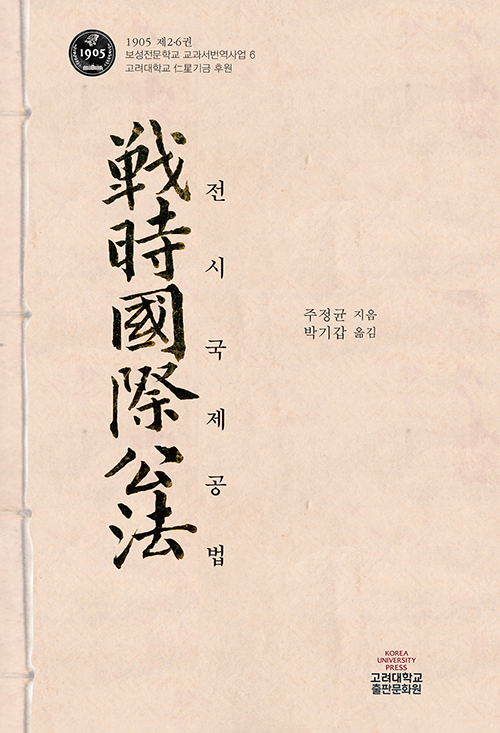 1905
1905 제2·6권
보성전문학교 교과서번역사업 6
고려대학교 仁星기금 후원
戦時國際公法
전시국제공법
주정균 지음
박기갑 옮김
KOREA
UNIVERSITY
PRESS
고려대학교
출판문화원